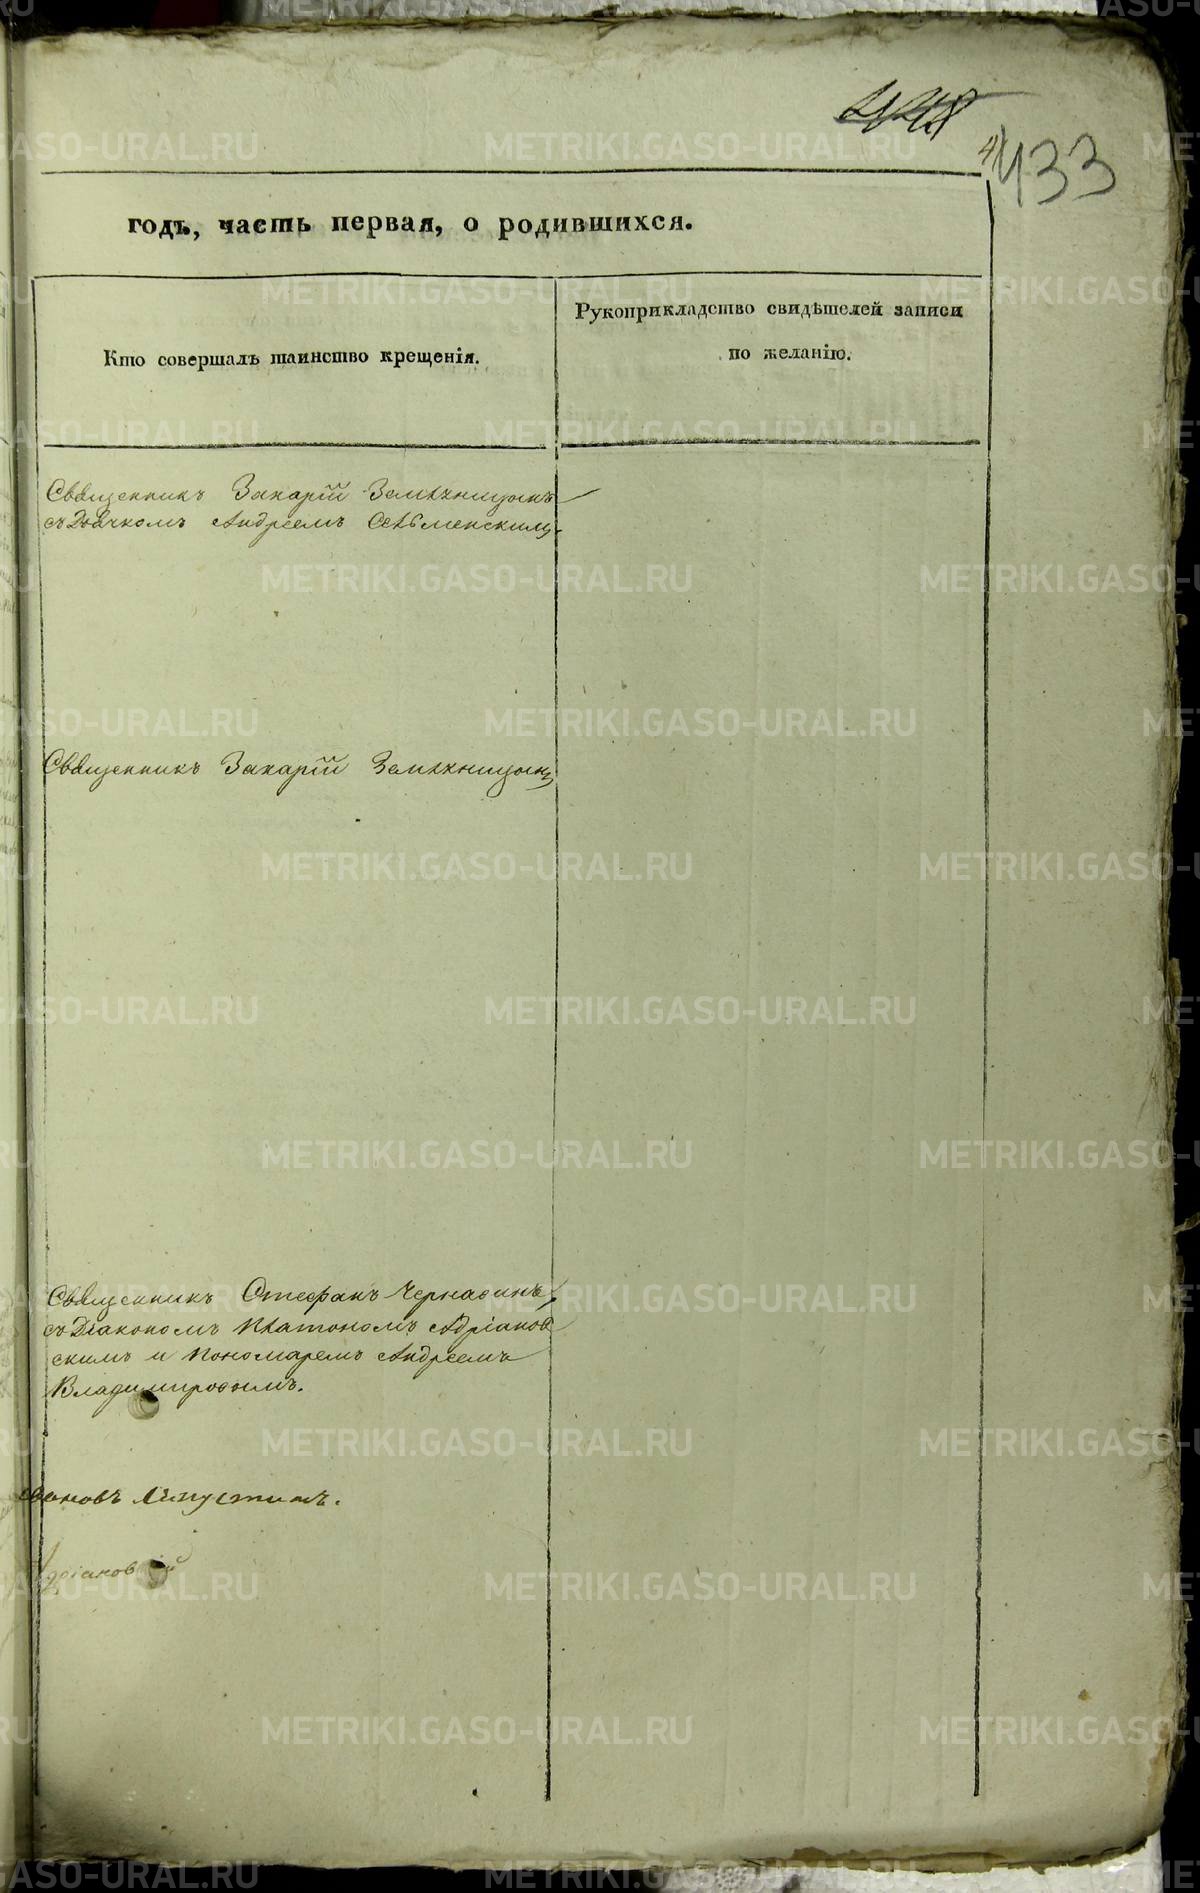 433
годъ, часть первая, о родившихся.
Кто совершалъ таинство крещенія.
Рукоприкладство свидѣтелей записи
по желанію.
Священникъ Захарій Земляницынъ
съ Дьячкомъ Андреемъ Сельменскимъ
Священникъ Захарій Земляницынъ
Священникъ Стефанъ Чернавинъ,
съ Діакономъ Платономъ Адріанов
скимъ и Пономаремъ Андреемъ
Владимировымъ.
METRIKI.GASO-URAL.RU